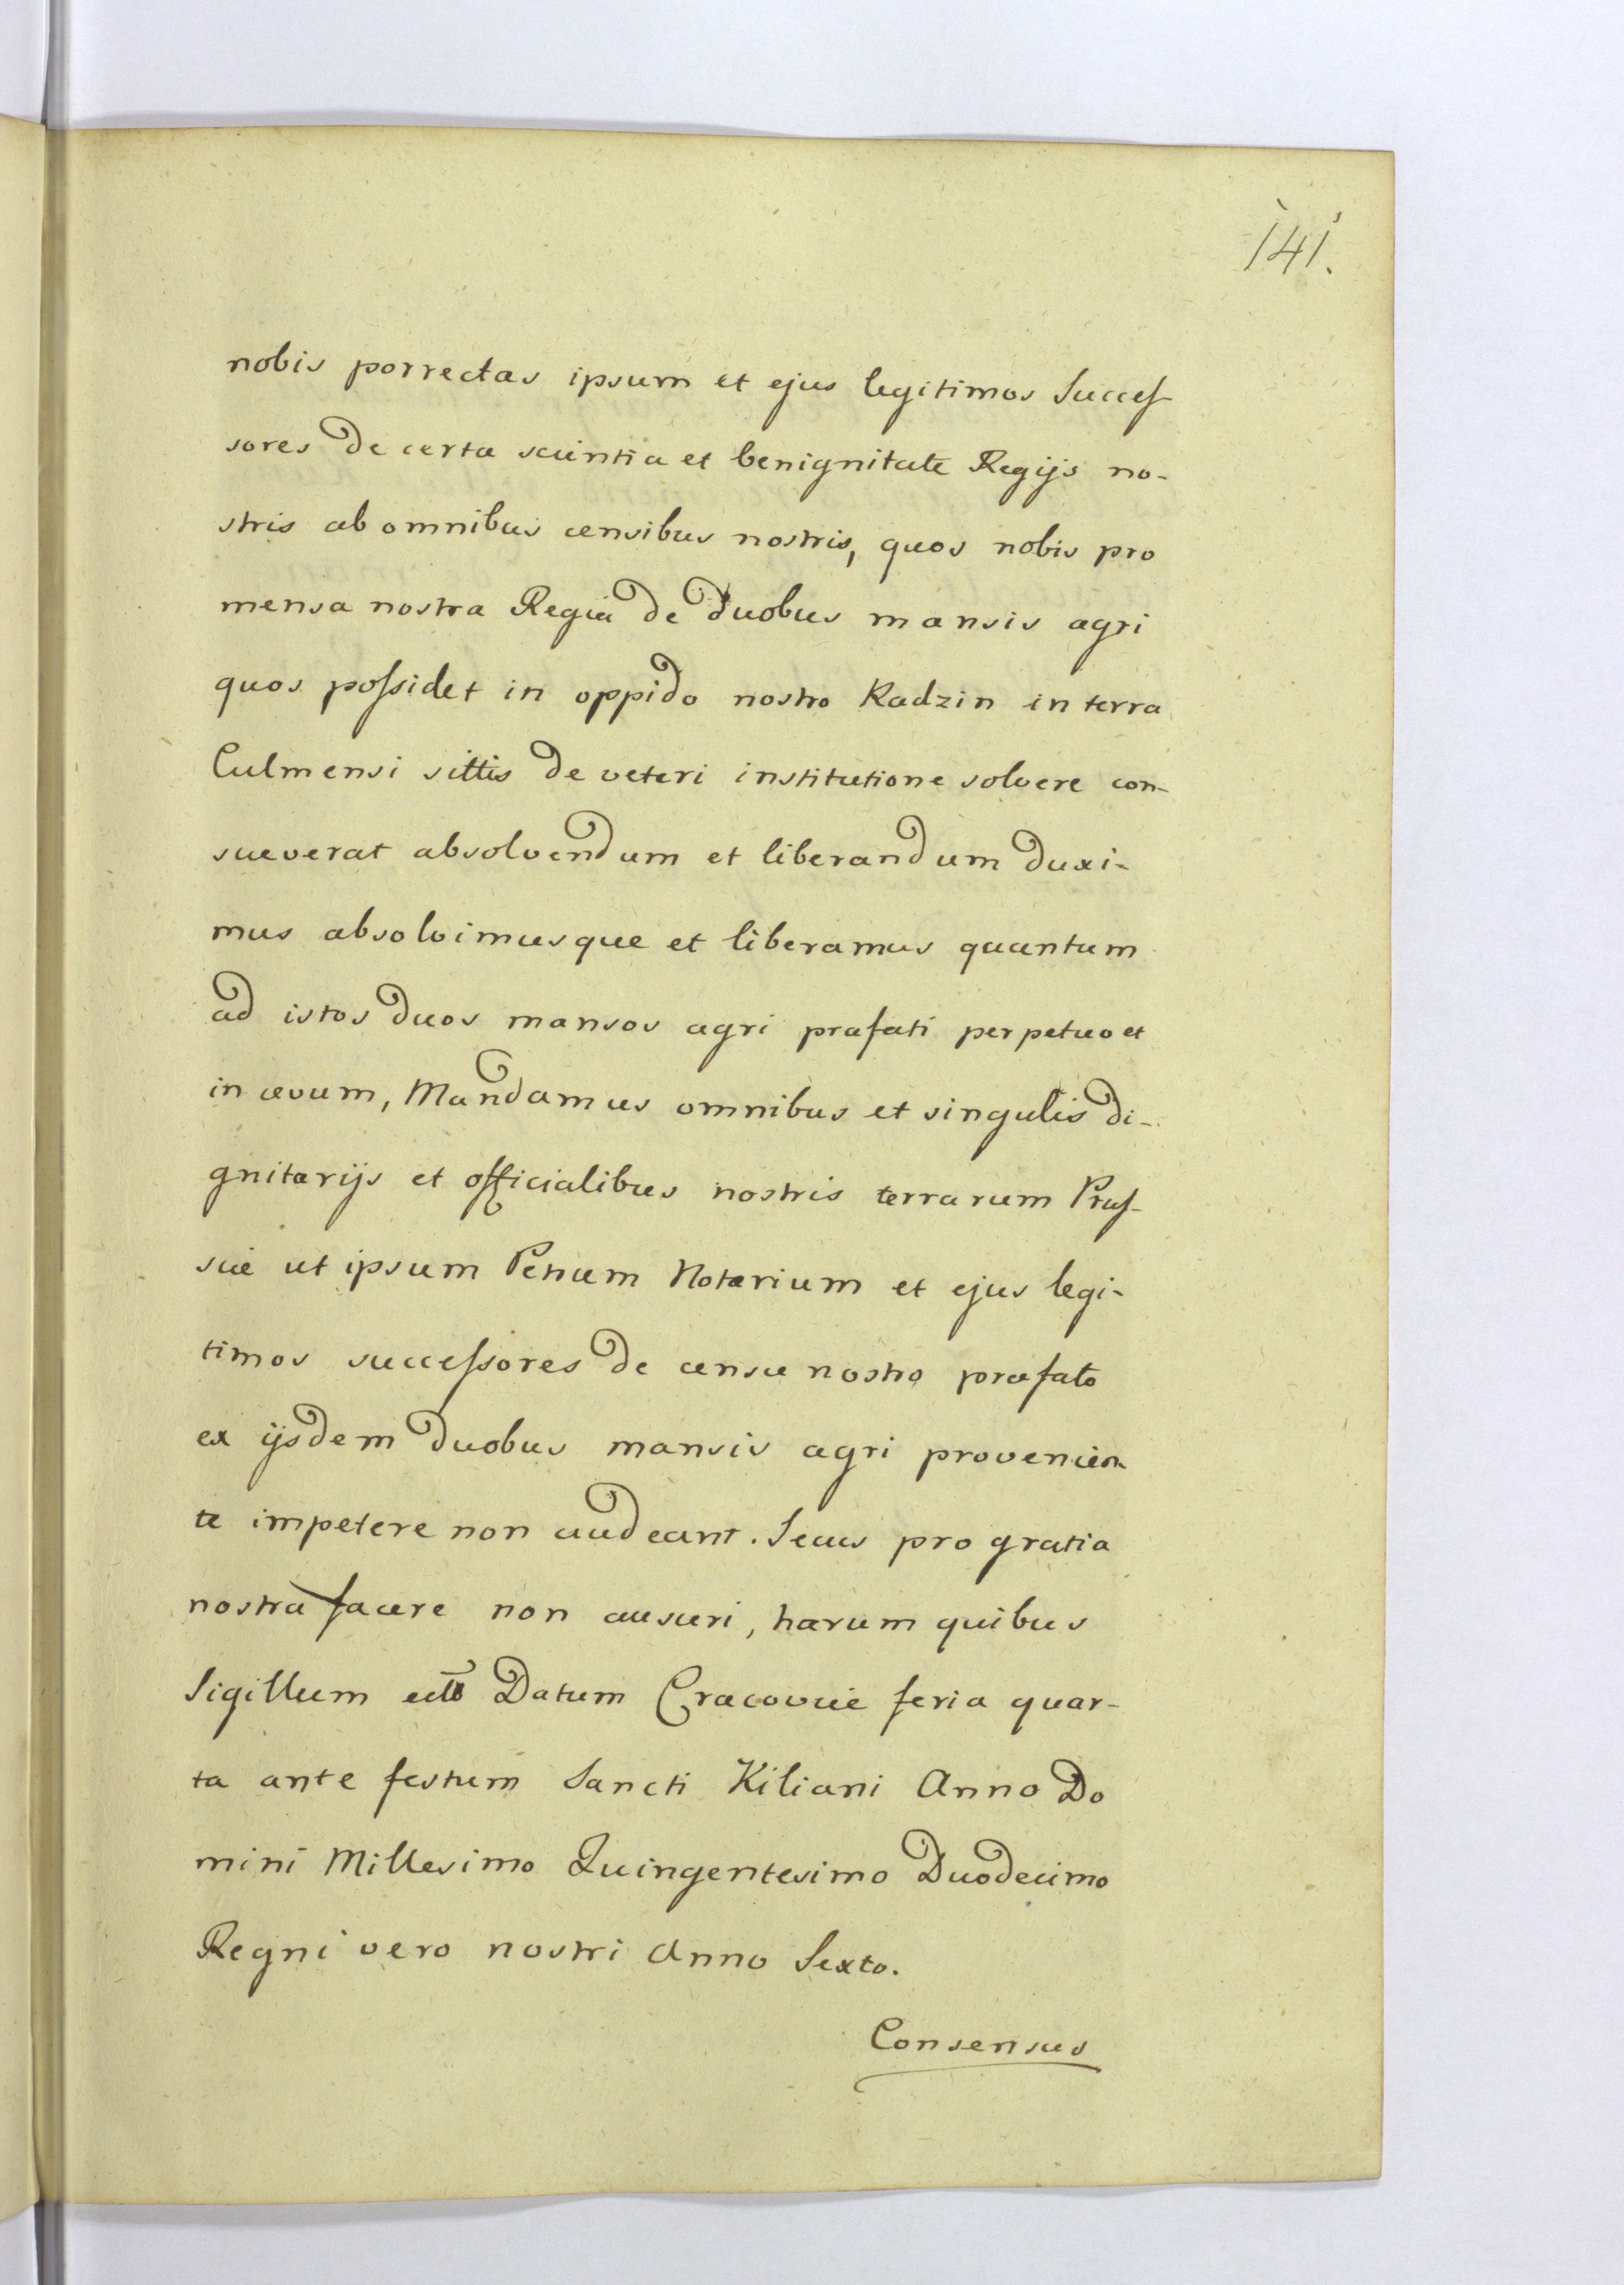 141.
nobis porrectas ipsum et ejus legitimos Succeſ-
sores de certa scientia et benignitate Regijs no-
stris ab omnibus censibus nostris, quos nobis pro
mensa nostra Regia de duobus mansis agri
quos poſsidet in oppido nostro Radzin in terra
Culmensi sittis de veteri institutione solvere con-
sueverat absolvendum et liberandum duxi-
mus absolvimusque et liberamus quantum
ad istos duos mansos agri præfati perpetuo et
in ævum, Mandamus omnibus et singulis di-
gnitarijs et officialibus nostris terrarum Pruſ-
siæ ut ipsum Petrum Notarium et ejus legi-
timos succeſsores de censu nostro præfato
ex ijsdem duobus mansis agri provenien
te impetere non audeant. Secus pro gratia
nostra facere non ausuri, harum quibus
Sigillum Datum Cracoviæ feria quar-
ta ante festum Sancti Kiliani Anno Do
mini Millesimo Quingentesimo Duodecimo
Regni vero nostri Anno Sexto.
Consensus